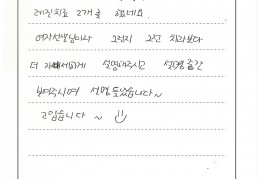 레진치료 2개를 했네요.
여자선생님이라 그런지 그전 치과보다
더 자세하게 설명해주시고 설명중간
보여주시며 선명 들었습니다~
고맙습니다~